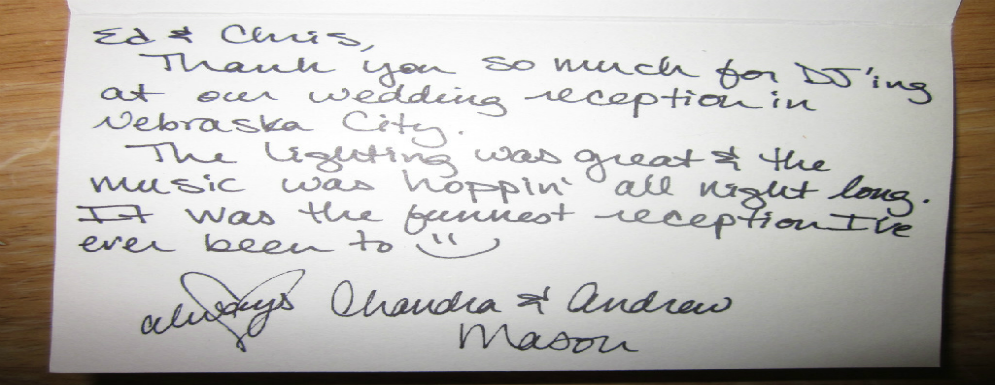 Ed & Chris,
Thank you so much for DJ'ing
at our wedding reception in
Nebraska City.
The lighting was great & the
music was hoppin' all night long.
It was the funnest reception I've
ever been to
always Chandra & Andrew
Mason